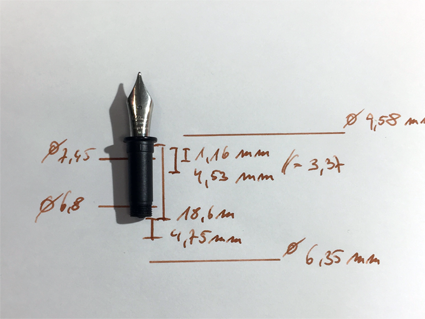 Ø 9,58 mm
Ø 7,45
1,16 mm
4,53 mm (= 3,37
Ø 6,8
18,6 m
4,75 mm
Ø 6,35 mm